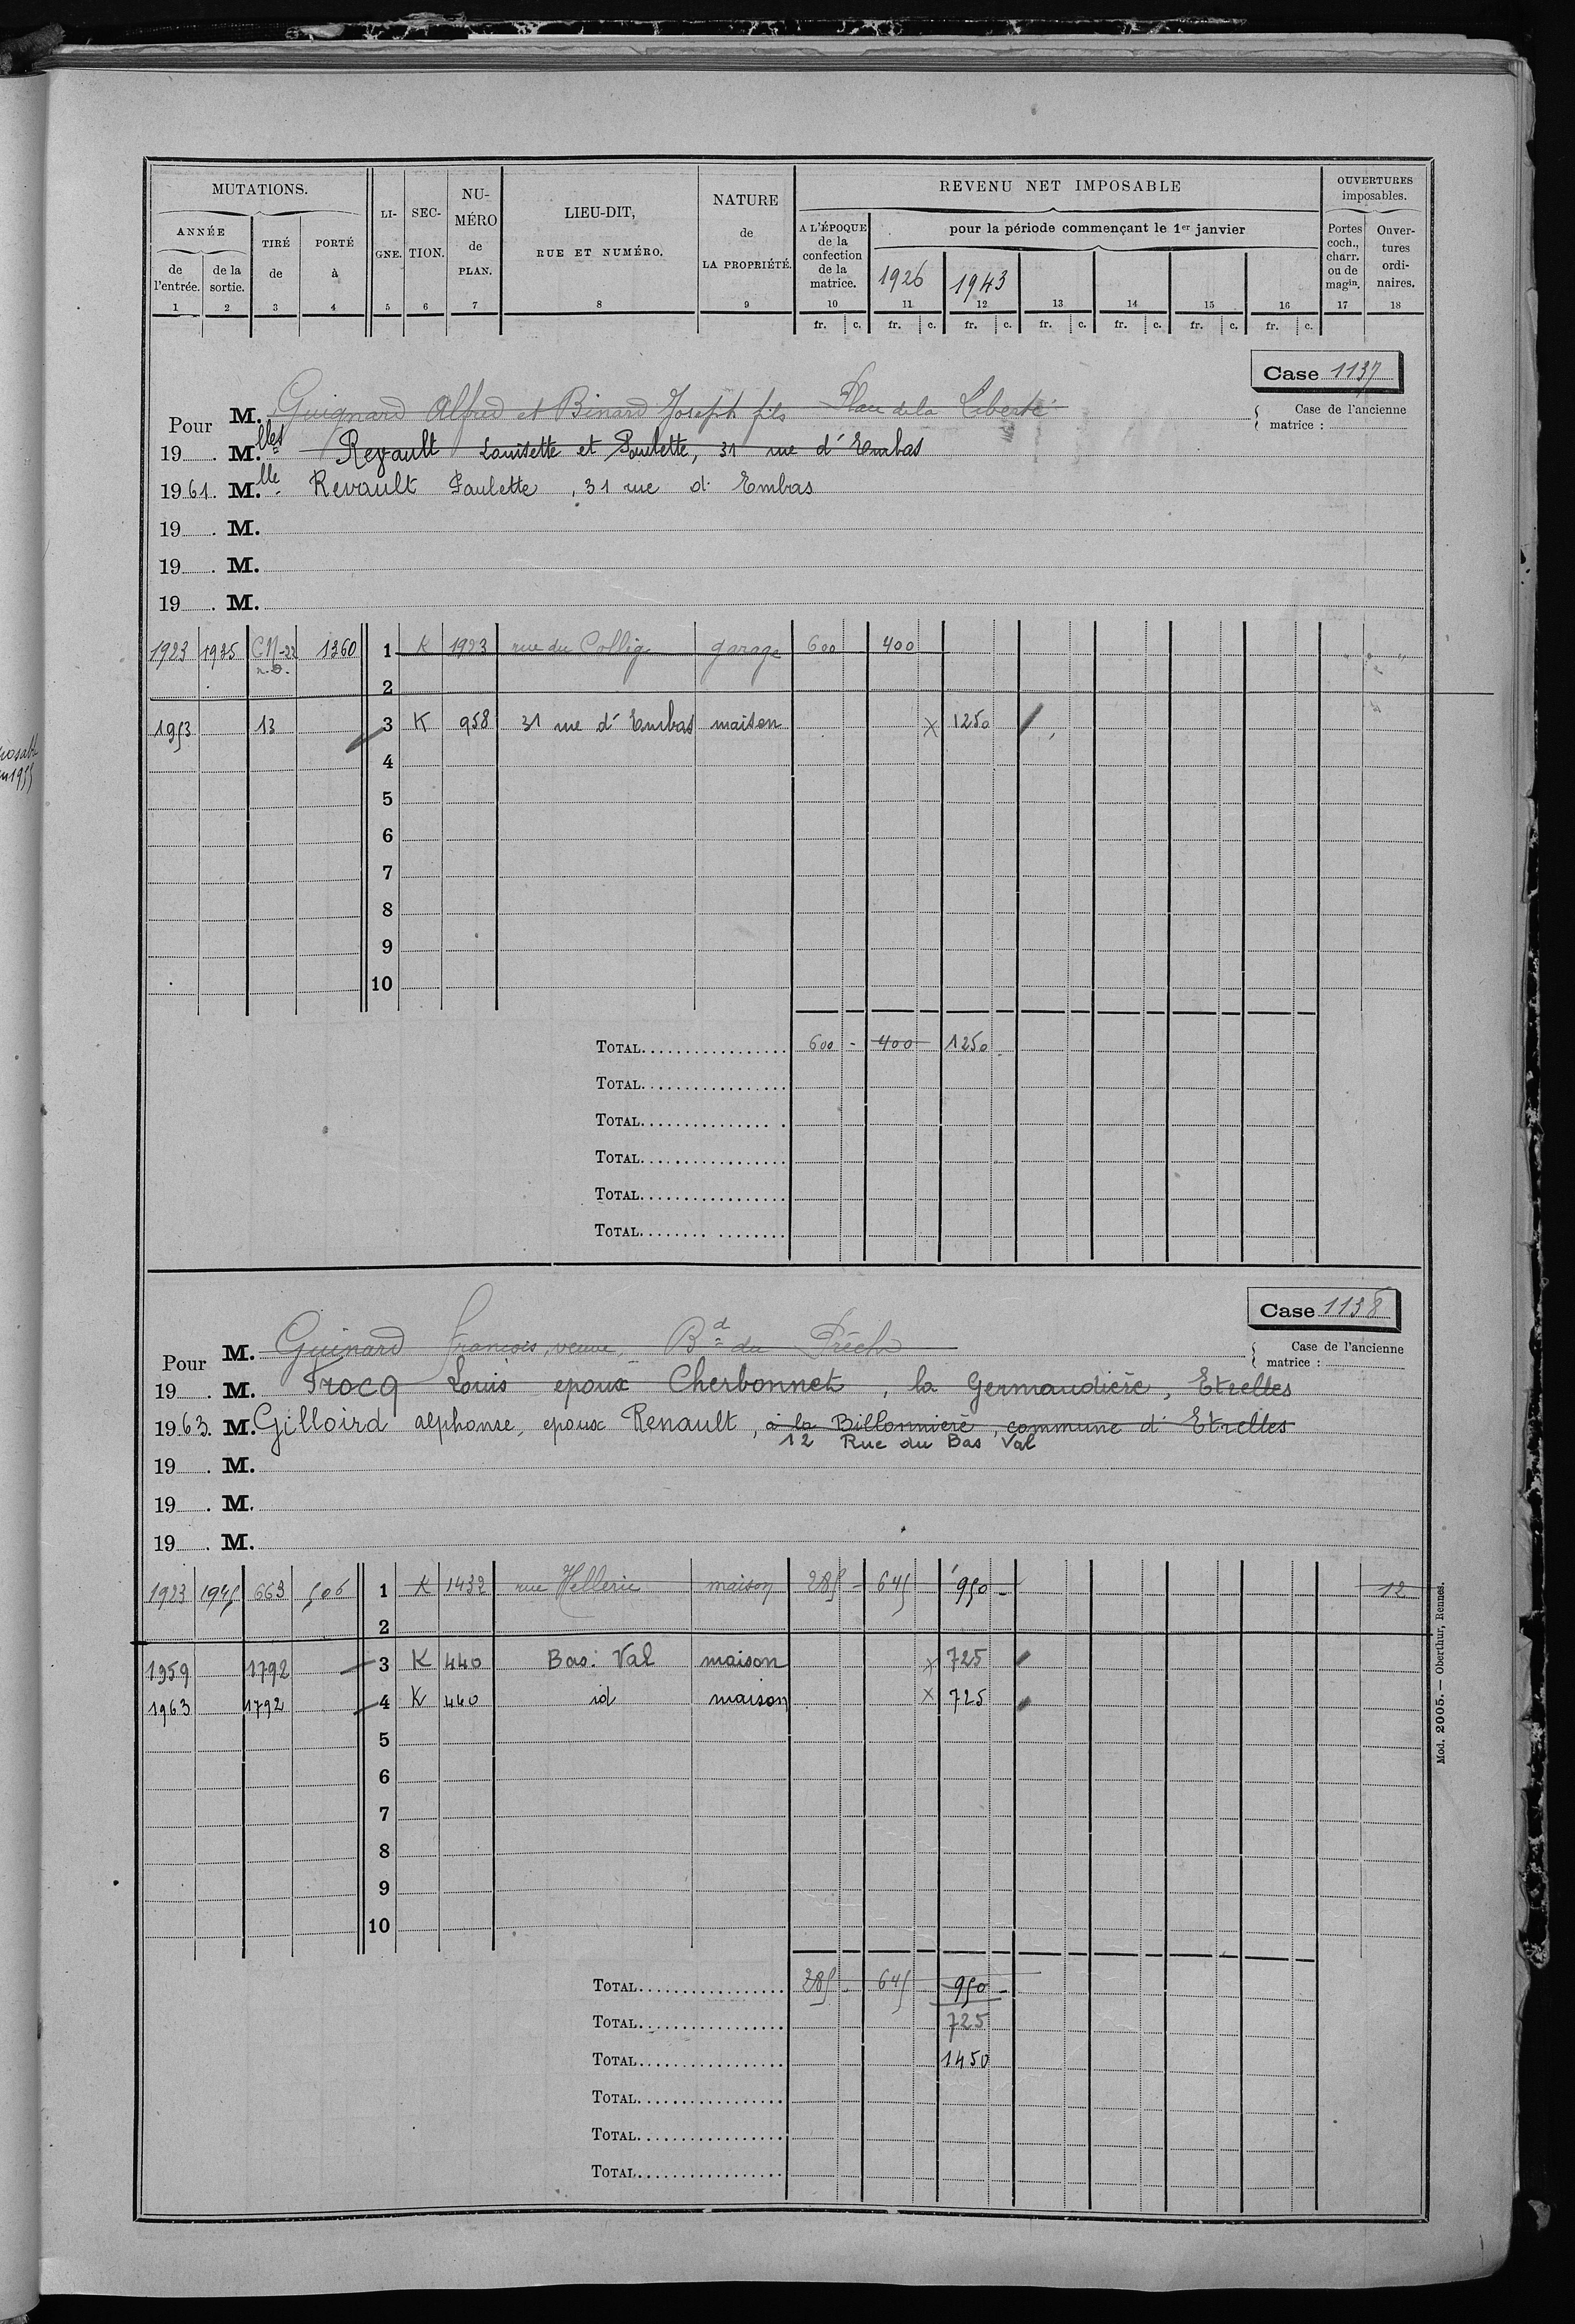 MUTATIONS.
ANNÉE
de l'entrée.
de la sortie.
TIRÉ de
PORTÉ à
LI-GNE.
SEC-TION.
NU-MÉRO de PLAN.
LIEU-DIT, RUE ET NUMÉRO.
NATURE de LA PROPRIÉTÉ.
REVENU NET IMPOSABLE
A L'ÉPOQUE de la confection de la matrice.
pour la période commençant le 1er janvier
1926 1943
OUVERTURES imposables.
Portes coch., charr. ou de magin.
Ouver-tures ordi-naires.
1 2 3 4 5 6 7 8 9 10 11 12 13 14 15 16 17 18
fr. c. fr. c. fr. c. fr. c. fr. c. fr. c. fr. c.
Case 1137
Case de l'ancienne matrice :
Pour M. Guignard Alfred et Binard Joseph fils Place de la Liberté
19 . M.lles Revault Louisette et Paulette, 31 rue d'Embas
1961. M.lle Revault Paulette, 31 rue d'Embas
19 . M.
19 . M.
19 . M.
1923 1925 CN-22 1360 1 K 1923 rue du Collège garage 600 400
n.D.
2
1953 13 3 K 958 31 rue d'Embas maison x 1250
4
5
6
7
8
9
10
TOTAL 600 - 400 1250
TOTAL
TOTAL
TOTAL
TOTAL
TOTAL
Case 1138
Case de l'ancienne matrice :
Pour M. Guinard François, veuve, Bd du
19 . M. Trocq Louis epoux Cherbonnet, la Germaudière, Etrelles
1963. M. Gilloird alphonse, epoux Renault, à la Billonnière, commune d'Etrelles
12 Rue du Bas Val
19 . M.
19 . M.
19 . M.
1923 1945 663 506 1 K 1432 rue Hellerie maison 285 - 645 950 - 12
2
1959 1792 3 K 440 Bas Val maison x 725
1963 1792 4 K 440 id maison x 725
5
6
7
8
9
10
TOTAL 285 - 645 950 -
TOTAL 725
TOTAL 1450
TOTAL
TOTAL
TOTAL
Mod. 2005. — Oberthur, Rennes.